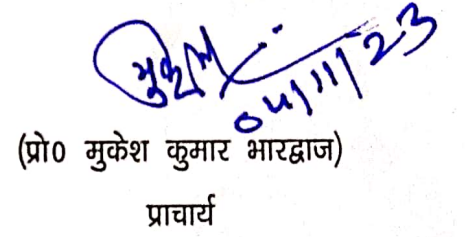 मुकेश
04/11/23
(प्रो0 मुकेश कुमार भारद्वाज)
प्राचार्य